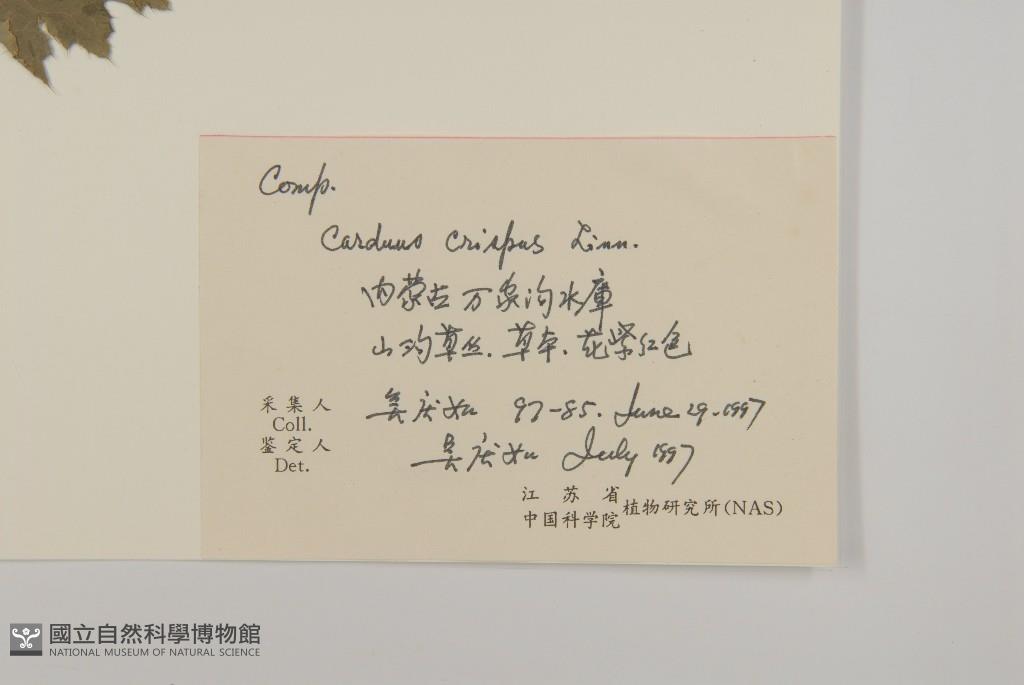 Comp.
Carduus crispus Linn.
内蒙古 万象沟水庫
山沟草丛. 草本. 花紫红色
采集人 吴庆如 97-85. June 29. 1997
Coll.
鉴定人 吴庆如 July 1997
Det.
江苏省
中国科学院 植物研究所(NAS)
國立自然科學博物館
NATIONAL MUSEUM OF NATURAL SCIENCE